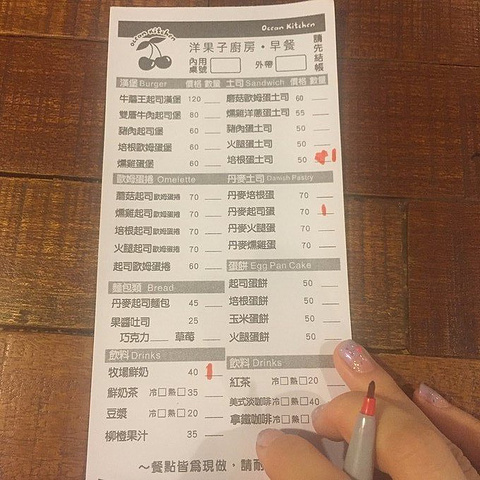 Ocean Kitchen
Ocean Kitchen
洋果子廚房・早餐
請先結帳
內用桌號 外帶
漢堡 Burger 價格 數量
牛蘑王起司漢堡 120
雙層牛肉起司堡 80
豬肉起司堡 60
培根歐姆蛋堡 60
燻雞蛋堡 60
土司 Sandwich 價格 數量
蘑菇歐姆蛋土司 60
燻雞洋蔥蛋土司 55
豬肉蛋土司 50
火腿蛋土司 50
培根蛋土司 50 1
歐姆蛋捲 Omelette
蘑菇起司歐姆蛋捲 70
燻雞起司歐姆蛋捲 70
培根起司歐姆蛋捲 70
火腿起司歐姆蛋捲 70
起司歐姆蛋捲 60
丹麥土司 Danish Pastry
丹麥培根蛋 70
丹麥起司蛋 70 1
丹麥火腿蛋 70
丹麥燻雞蛋 70
麵包類 Bread
丹麥起司麵包 45
果醬吐司 25
巧克力 草莓
蛋餅 Egg Pan Cake
起司蛋餅 50
培根蛋餅 50
玉米蛋餅 50
火腿蛋餅 50
飲料 Drinks
牧場鮮奶 40 1
鮮奶茶 冷□熱□ 35
豆漿 冷□熱□ 20
柳橙果汁 35
飲料 Drinks
紅茶 冷□熱□ 20
美式淡咖啡 冷□熱□ 40
拿鐵咖啡 冷□熱□
～餐點皆為現做，請耐